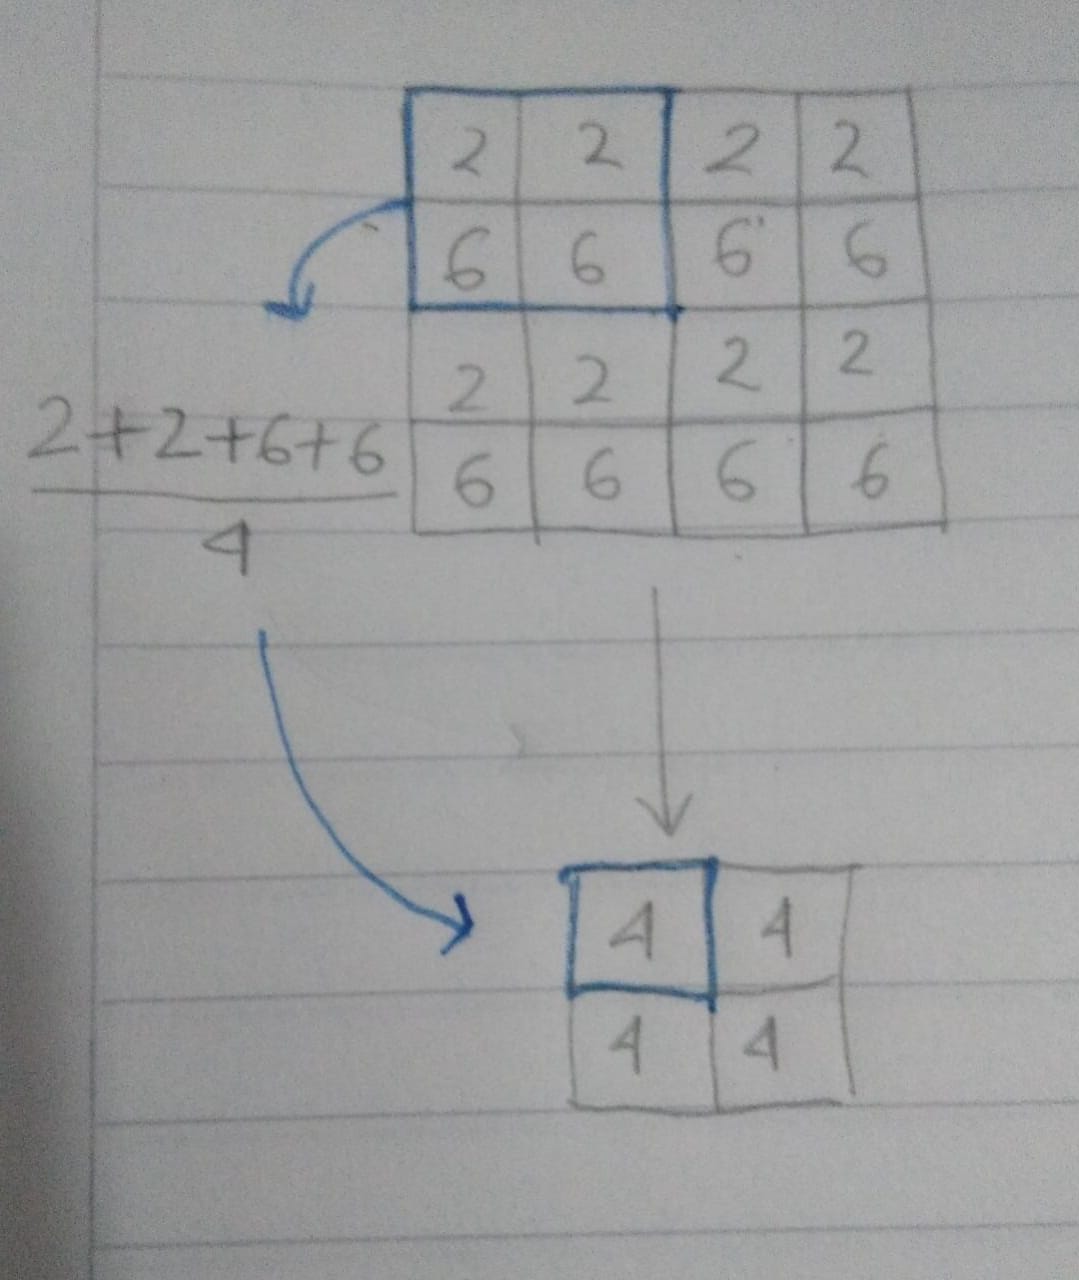 2 2 2 2
6 6 6 6
2 2 2 2
6 6 6 6
2+2+6+6
4
4 4
4 4